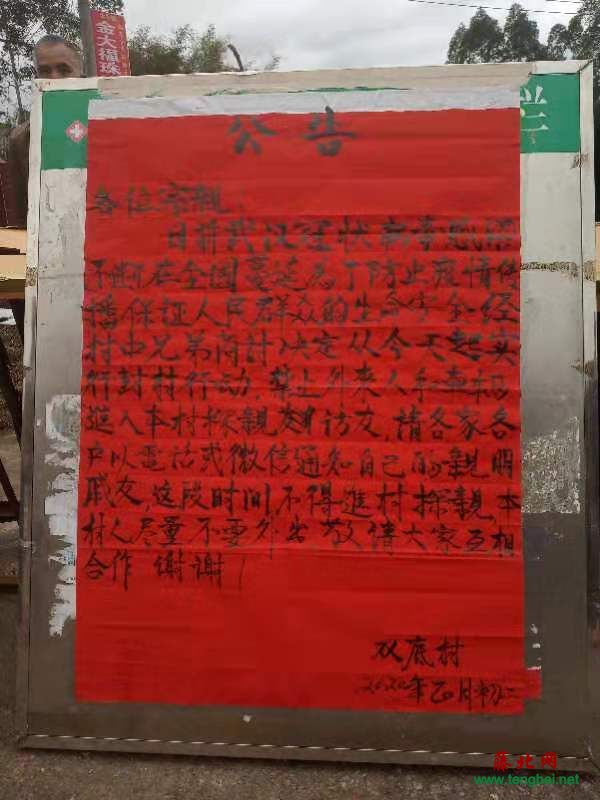 金大福珠
栏
公告
各位宗亲:
目前武汉冠状病毒感
不断在全国蔓延为了防止疫情传
播保证人民群众的生命安全经
村中兄弟商讨决定从今天起实
行封村行动,禁止外来人和车辆
進入本村探親訪友,请各家各
户以電话或微信通知自己的親朋
戚友,这段时间,不得進村探親,本
村人尽量不要外出敬请大家互相
合作 谢谢!
双底村
2020年正月初二
藤北网
www.tengbei.net